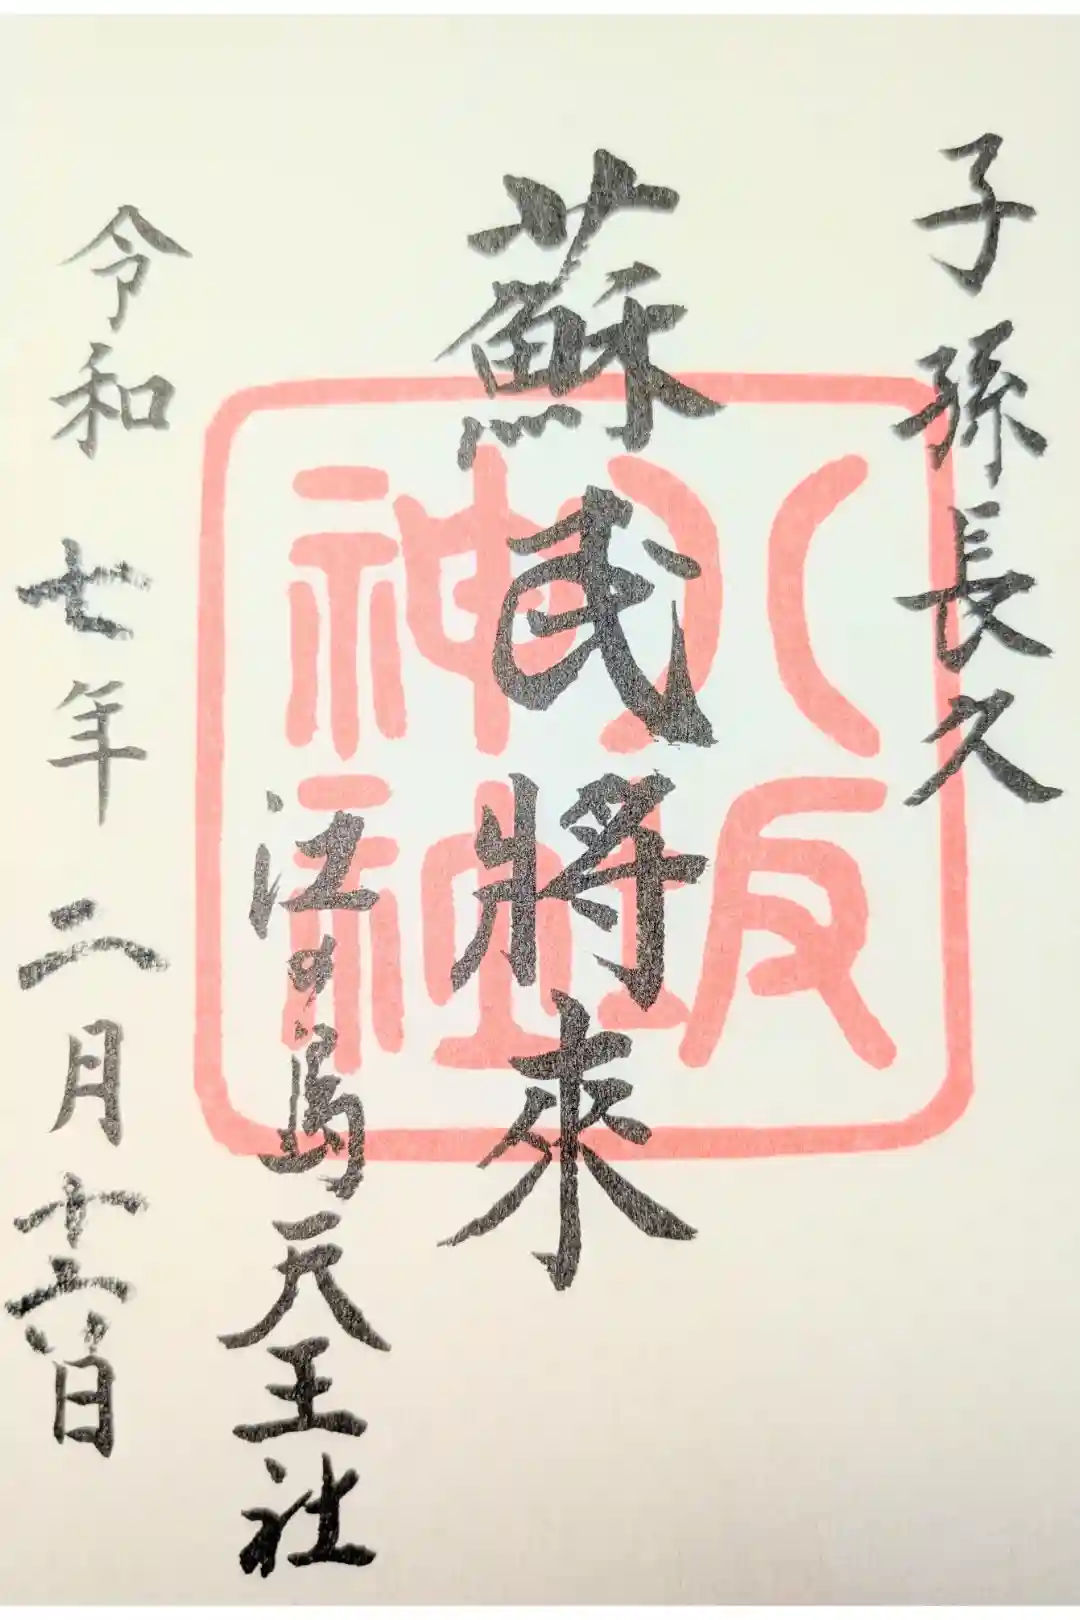 子孫長久
蘇民將來
江の島天王社
令和七年二月十六日
八坂
神社